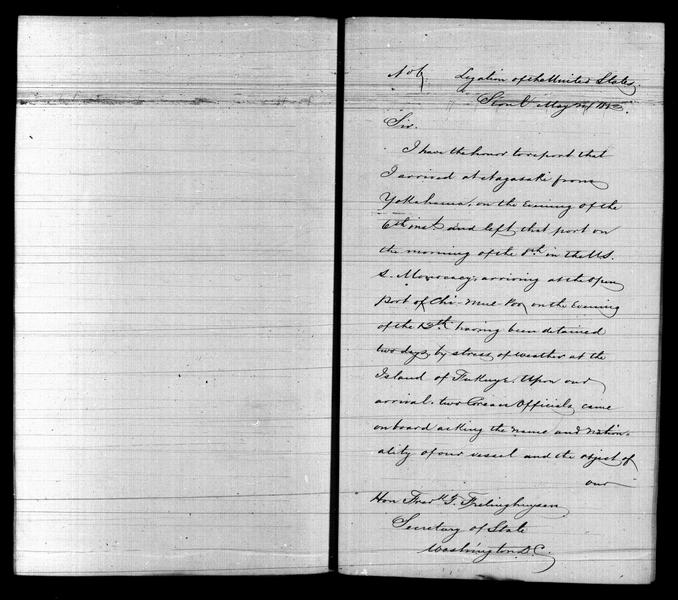 No 6, Legation of the United States.
Seoul May 24/1883.
Sir.
I have the honor to report that
I arrived at Nagasaki from
Yokohama, on the Evening of the
6th inst. and left that port on
the morning of the 8th in the U.S.
S. Monocacy, arriving at the open
port of Chi-Mul-Poo, on the Evening
of the 13th having been detained
two days, by stress of weather at the
Island of . Upon our
arrival. two Corean Officials, came
on board asking the name and nation-
ality of our vessel and the object of
our
Hon Fredk T. Frelinghuysen
Secretary of State
Washington D.C.